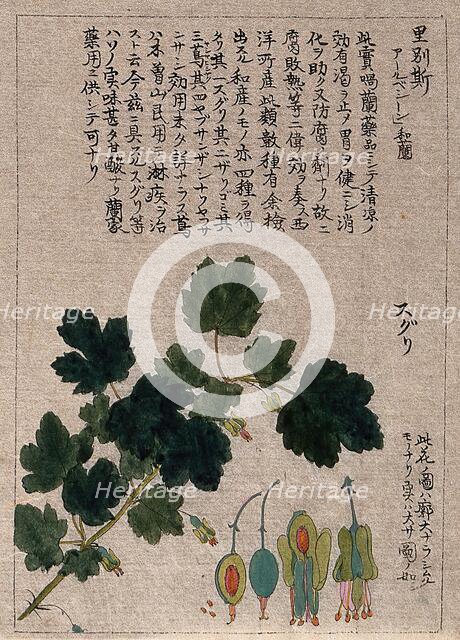 里別斯
アールベシーン 和蘭
此實喎蘭藥品ニシテ清凉ノ
効有渇ヲ止ア胃ヲ健ニシ消
化ヲ助ク又防腐ノ劑ナリ故ニ
腐敗熱等ニ偉効ヲ奏ス西
洋町産此類数種有余検
出スル和産ノモノ亦四種ヲ得
タリ其一スグリ其二ザリゴミ其
三蔦其四ヤブサンザシナリ
ニサン効用未タ
ハ木曽山民用テ淋疾ヲ治
スト云今茲ニ具スルスグリ等
ハソノ実味甚タ酸ナリ蘭家
藥用ニ供シテ可ナリ
スグリ
此花ノ圖ハ郭大ナラシ
モノナリ実ハ大サ圖ノ如シ
Heritage
Heritage
Heritage
Heritage
Heritage
Heritage
Heritage
Heritage